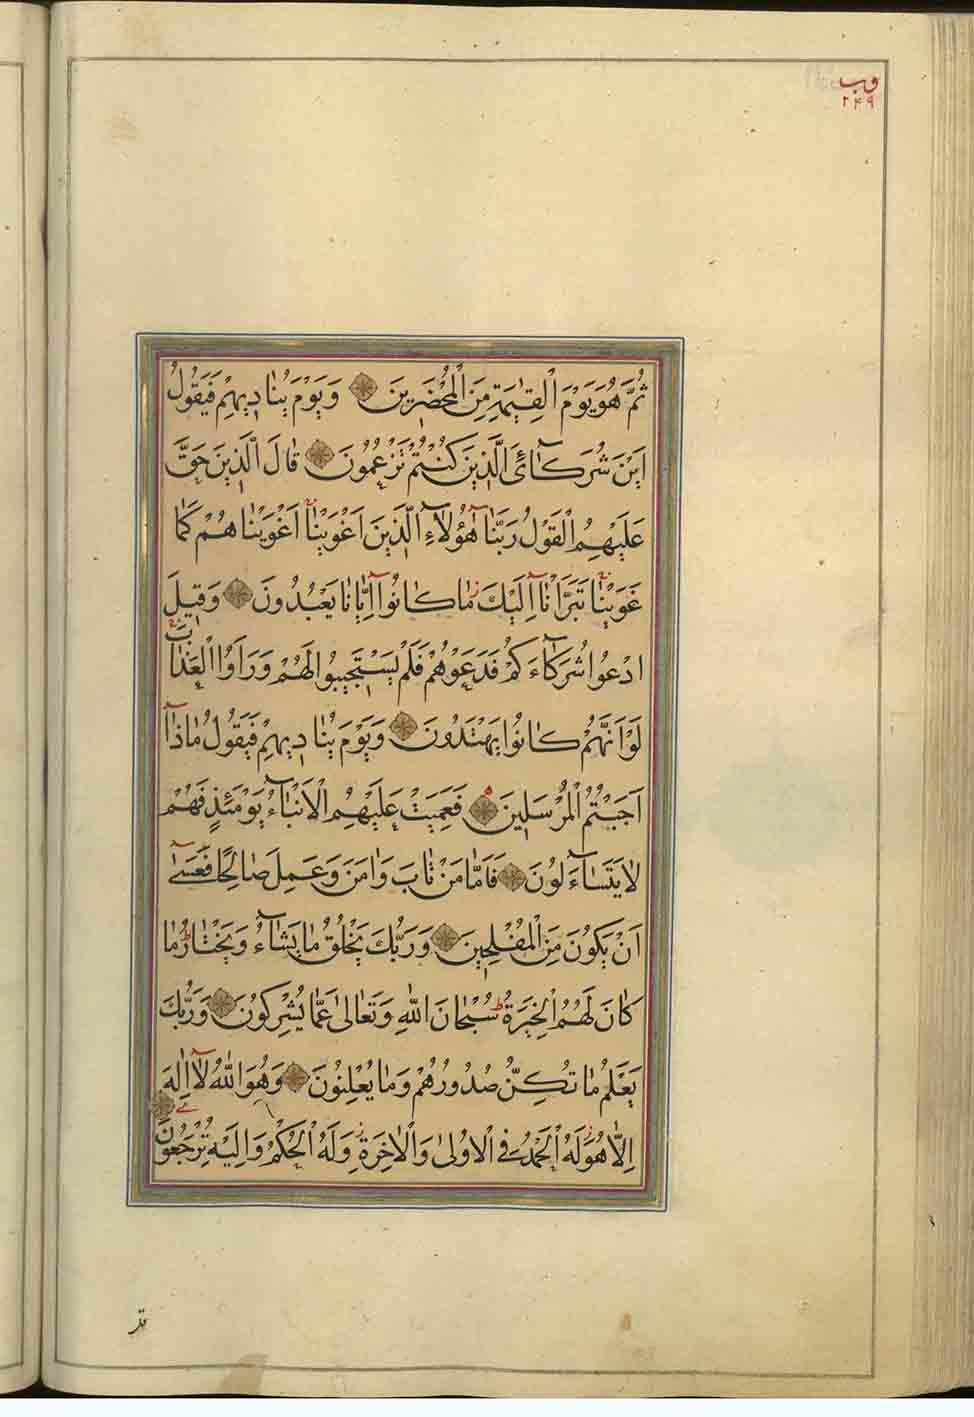 وب
٢٤٩
ثُمَّ هُوَ يَوْمَ الْقِيٰمَةِ مِنَ الْمُحْضَرِينَ وَيَوْمَ يُنَادِيهِمْ فَيَقُولُ
اَيْنَ شُرَكَآئِىَ الَّذِينَ كُنْتُمْ تَزْعُمُونَ قَالَ الَّذِينَ حَقَّ
عَلَيْهِمُ الْقَوْلُ رَبَّنَا هٰٓؤُلَآءِ الَّذِينَ اَغْوَيْنَآ اَغْوَيْنَاهُمْ كَمَا
غَوَيْنَا تَبَرَّاْنَآ اِلَيْكَ مَا كَانُوٓا اِيَّانَا يَعْبُدُونَ وَقِيلَ
ادْعُوا شُرَكَآءَكُمْ فَدَعَوْهُمْ فَلَمْ يَسْتَجِيبُوا لَهُمْ وَرَاَوُا الْعَذَابَ
لَوْ اَنَّهُمْ كَانُوا يَهْتَدُونَ وَيَوْمَ يُنَادِيهِمْ فَيَقُولُ مَاذَآ
اَجَبْتُمُ الْمُرْسَلِينَ فَعَمِيَتْ عَلَيْهِمُ الْاَنْبَآءُ يَوْمَئِذٍ فَهُمْ
لَا يَتَسَآءَلُونَ فَاَمَّا مَنْ تَابَ وَاٰمَنَ وَعَمِلَ صَالِحًا فَعَسٰٓى
اَنْ يَكُونَ مِنَ الْمُفْلِحِينَ وَرَبُّكَ يَخْلُقُ مَا يَشَآءُ وَيَخْتَارُ مَا
كَانَ لَهُمُ الْخِيَرَةُ سُبْحَانَ اللّٰهِ وَتَعَالٰى عَمَّا يُشْرِكُونَ وَرَبُّكَ
يَعْلَمُ مَا تُكِنُّ صُدُورُهُمْ وَمَا يُعْلِنُونَ وَهُوَ اللّٰهُ لَآ اِلٰهَ
اِلَّا هُوَ لَهُ الْحَمْدُ فِى الْاُولٰى وَالْاٰخِرَةِ وَلَهُ الْحُكْمُ وَاِلَيْهِ تُرْجَعُونَ